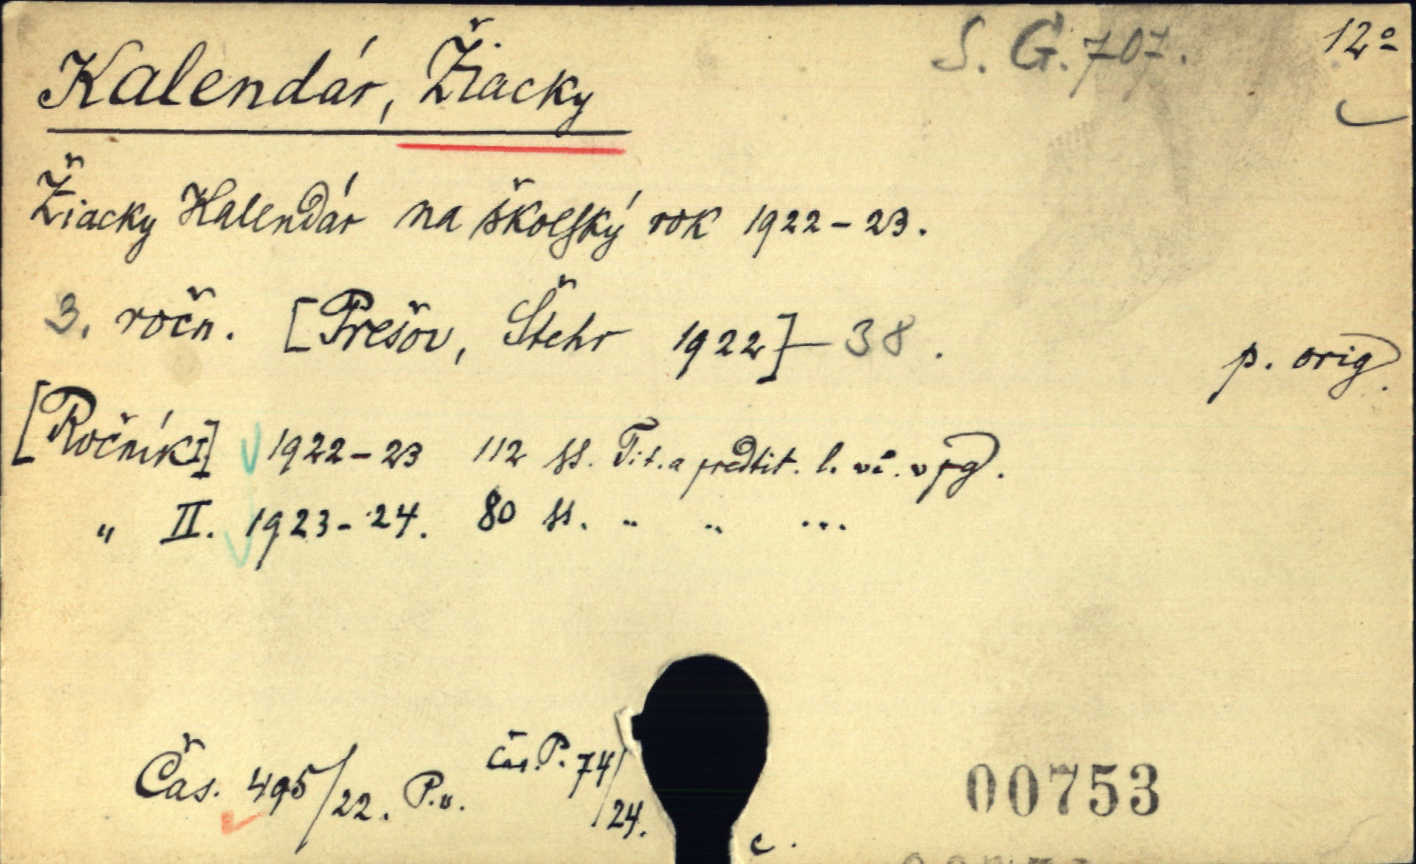 S. G. 707. 12º
Kalendár, Žiacky
Žiacky Kalendár na školský rok 1922-23.
3. ročn. [Prešov, Štehr 1922]-38.
p. orig.
[Ročník I] 1922-23 112 ss. Tit. a predtit. l. vč. v pg.
„ II. 1923-24. 80 ss. „ „ ...
Čas. 495/22. P.v. čas. P. 74/24.
c.
00753